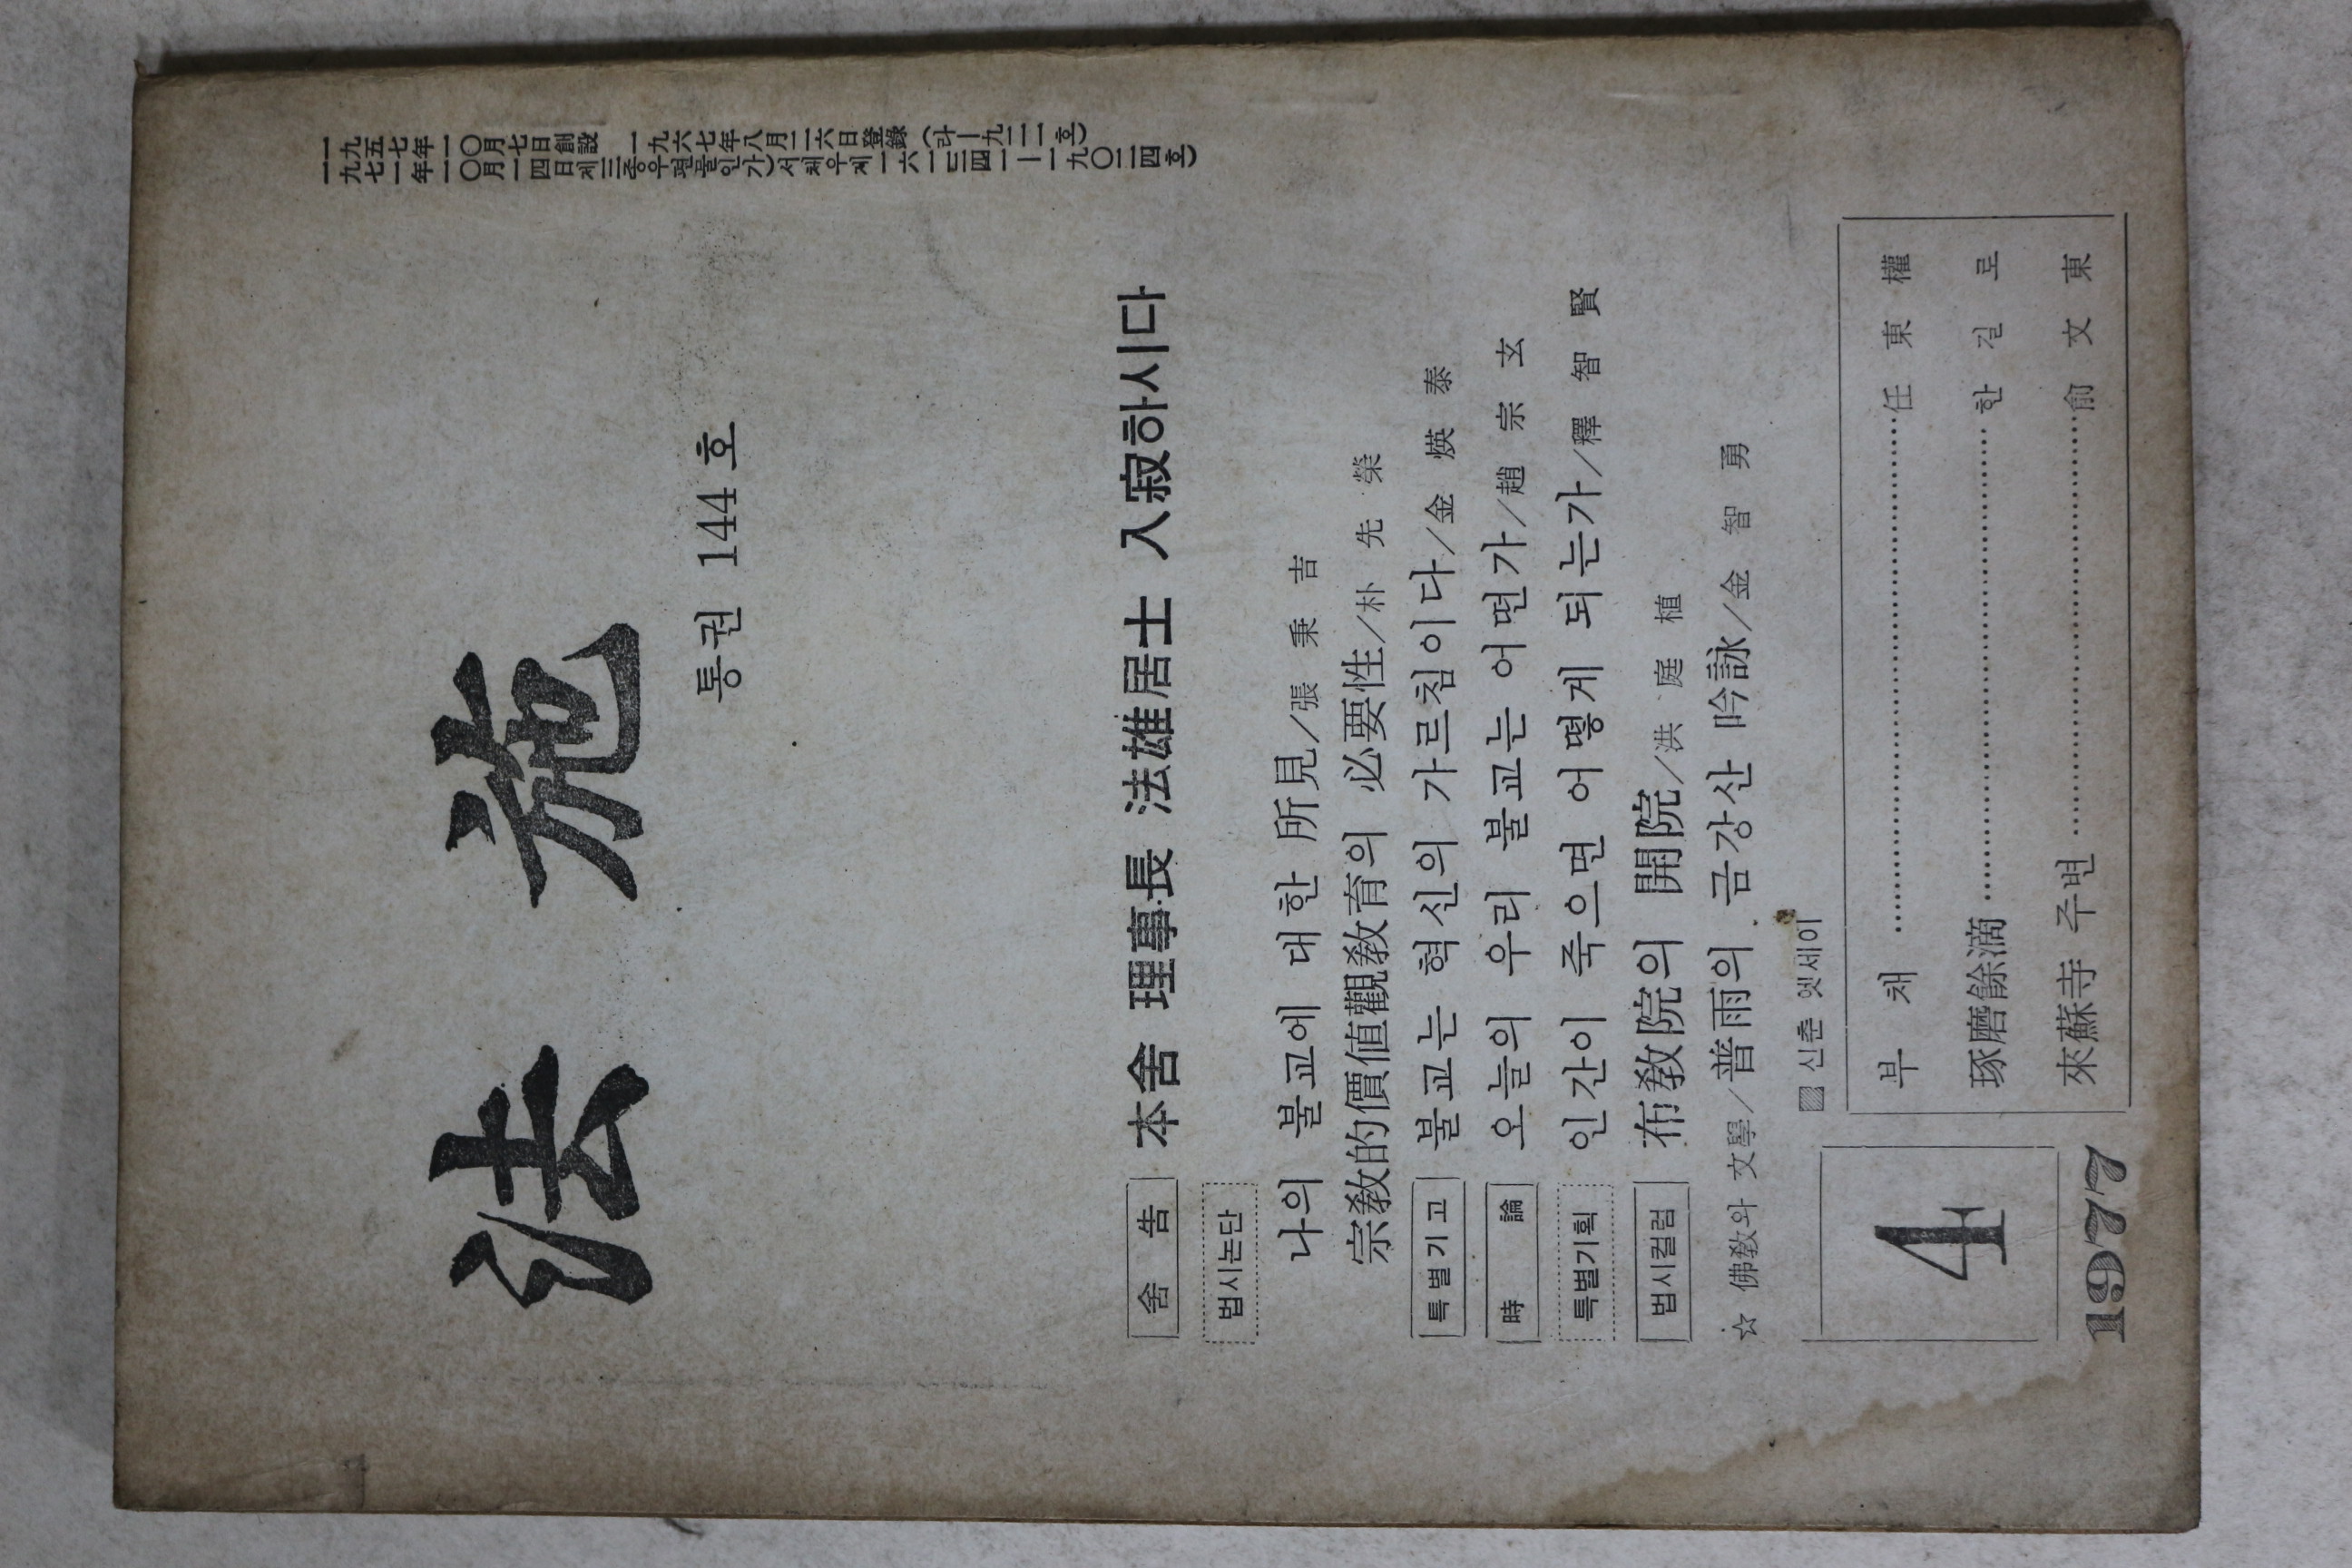 法 施
통권 144 호
一九五七年一〇月七日創設 一九六七年八月二六日登錄
一九七一年一〇月一四日제三종우편물인가)
舍 告 本舍 理事長 法雄居士 入寂하시다
법시논단
나의 불교에 대한 所見/張 秉 吉
宗敎的價値觀敎育의 必要性/朴 先 榮
특별기고 불교는 혁신의 가르침이다/金 煐 泰
時 論 오늘의 우리 불교는 어떤가/趙 宗 玄
특별기획 인간이 죽으면 어떻게 되는가/釋 智 賢
법시컬럼 布敎院의 開院/洪 庭 植
☆ 佛敎와 文學/普雨의 금강산 吟詠/金 智 勇
▨ 신춘 엣세이
부 채 ……………………… 任 東 權
琢磨餘滴 ……………………… 한 길 로
來蘇寺 주변 ……………………… 俞 文 東
4
1977